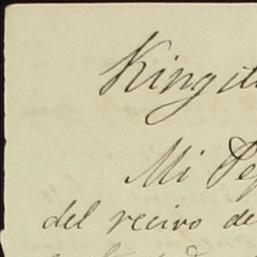 Kingst
Mi Pe
del recivo de